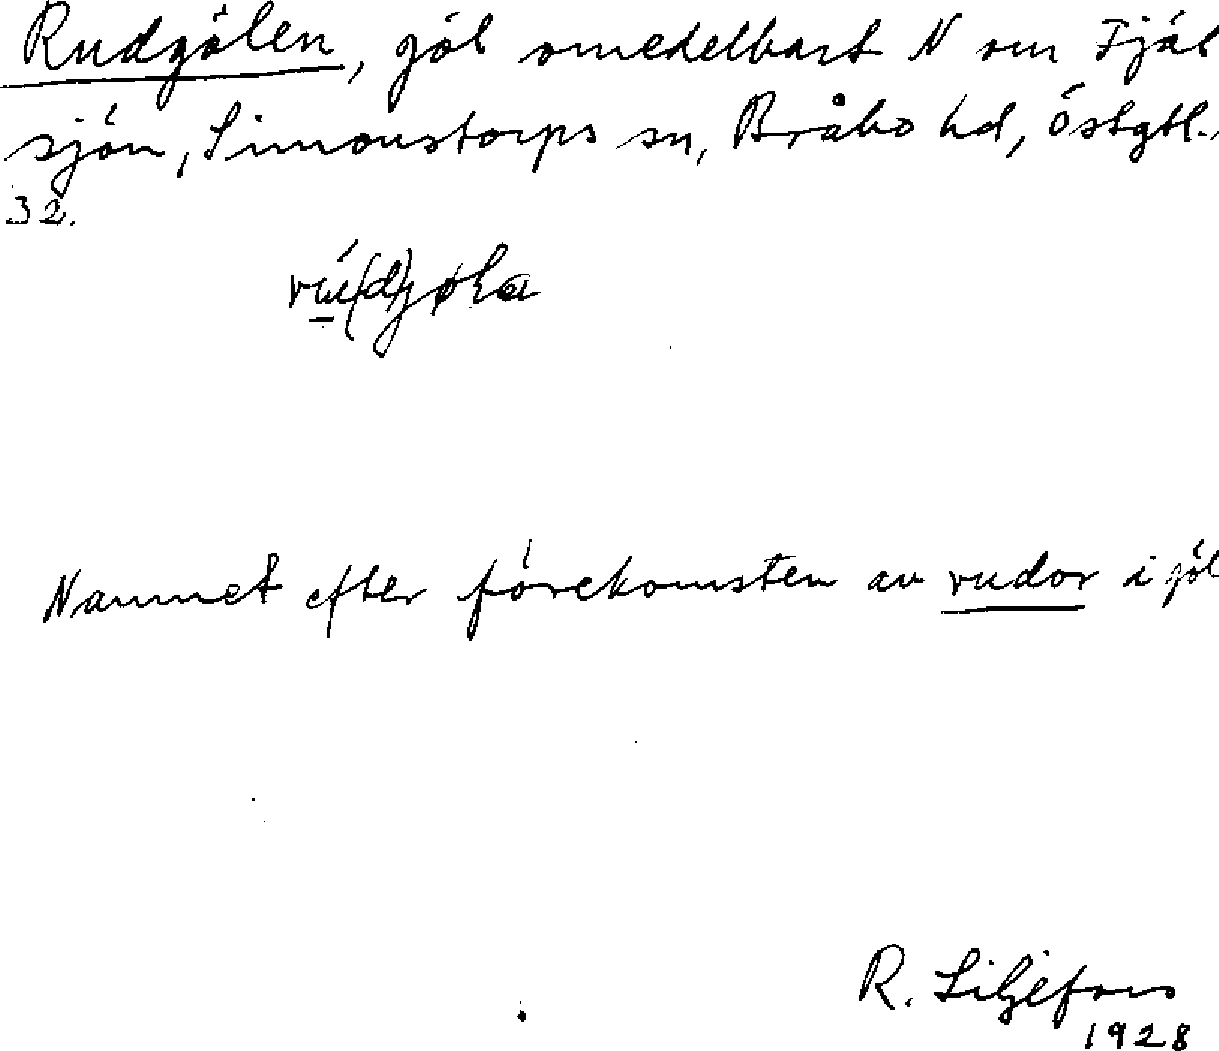 Rudgölen, göl omedelbart N om Fjäl
sjön, Simonstorps sn, Bråbo hd, Östgtl.,
32.
Namnet efter förekomsten av rudor i göl
R. Liljefors
1928